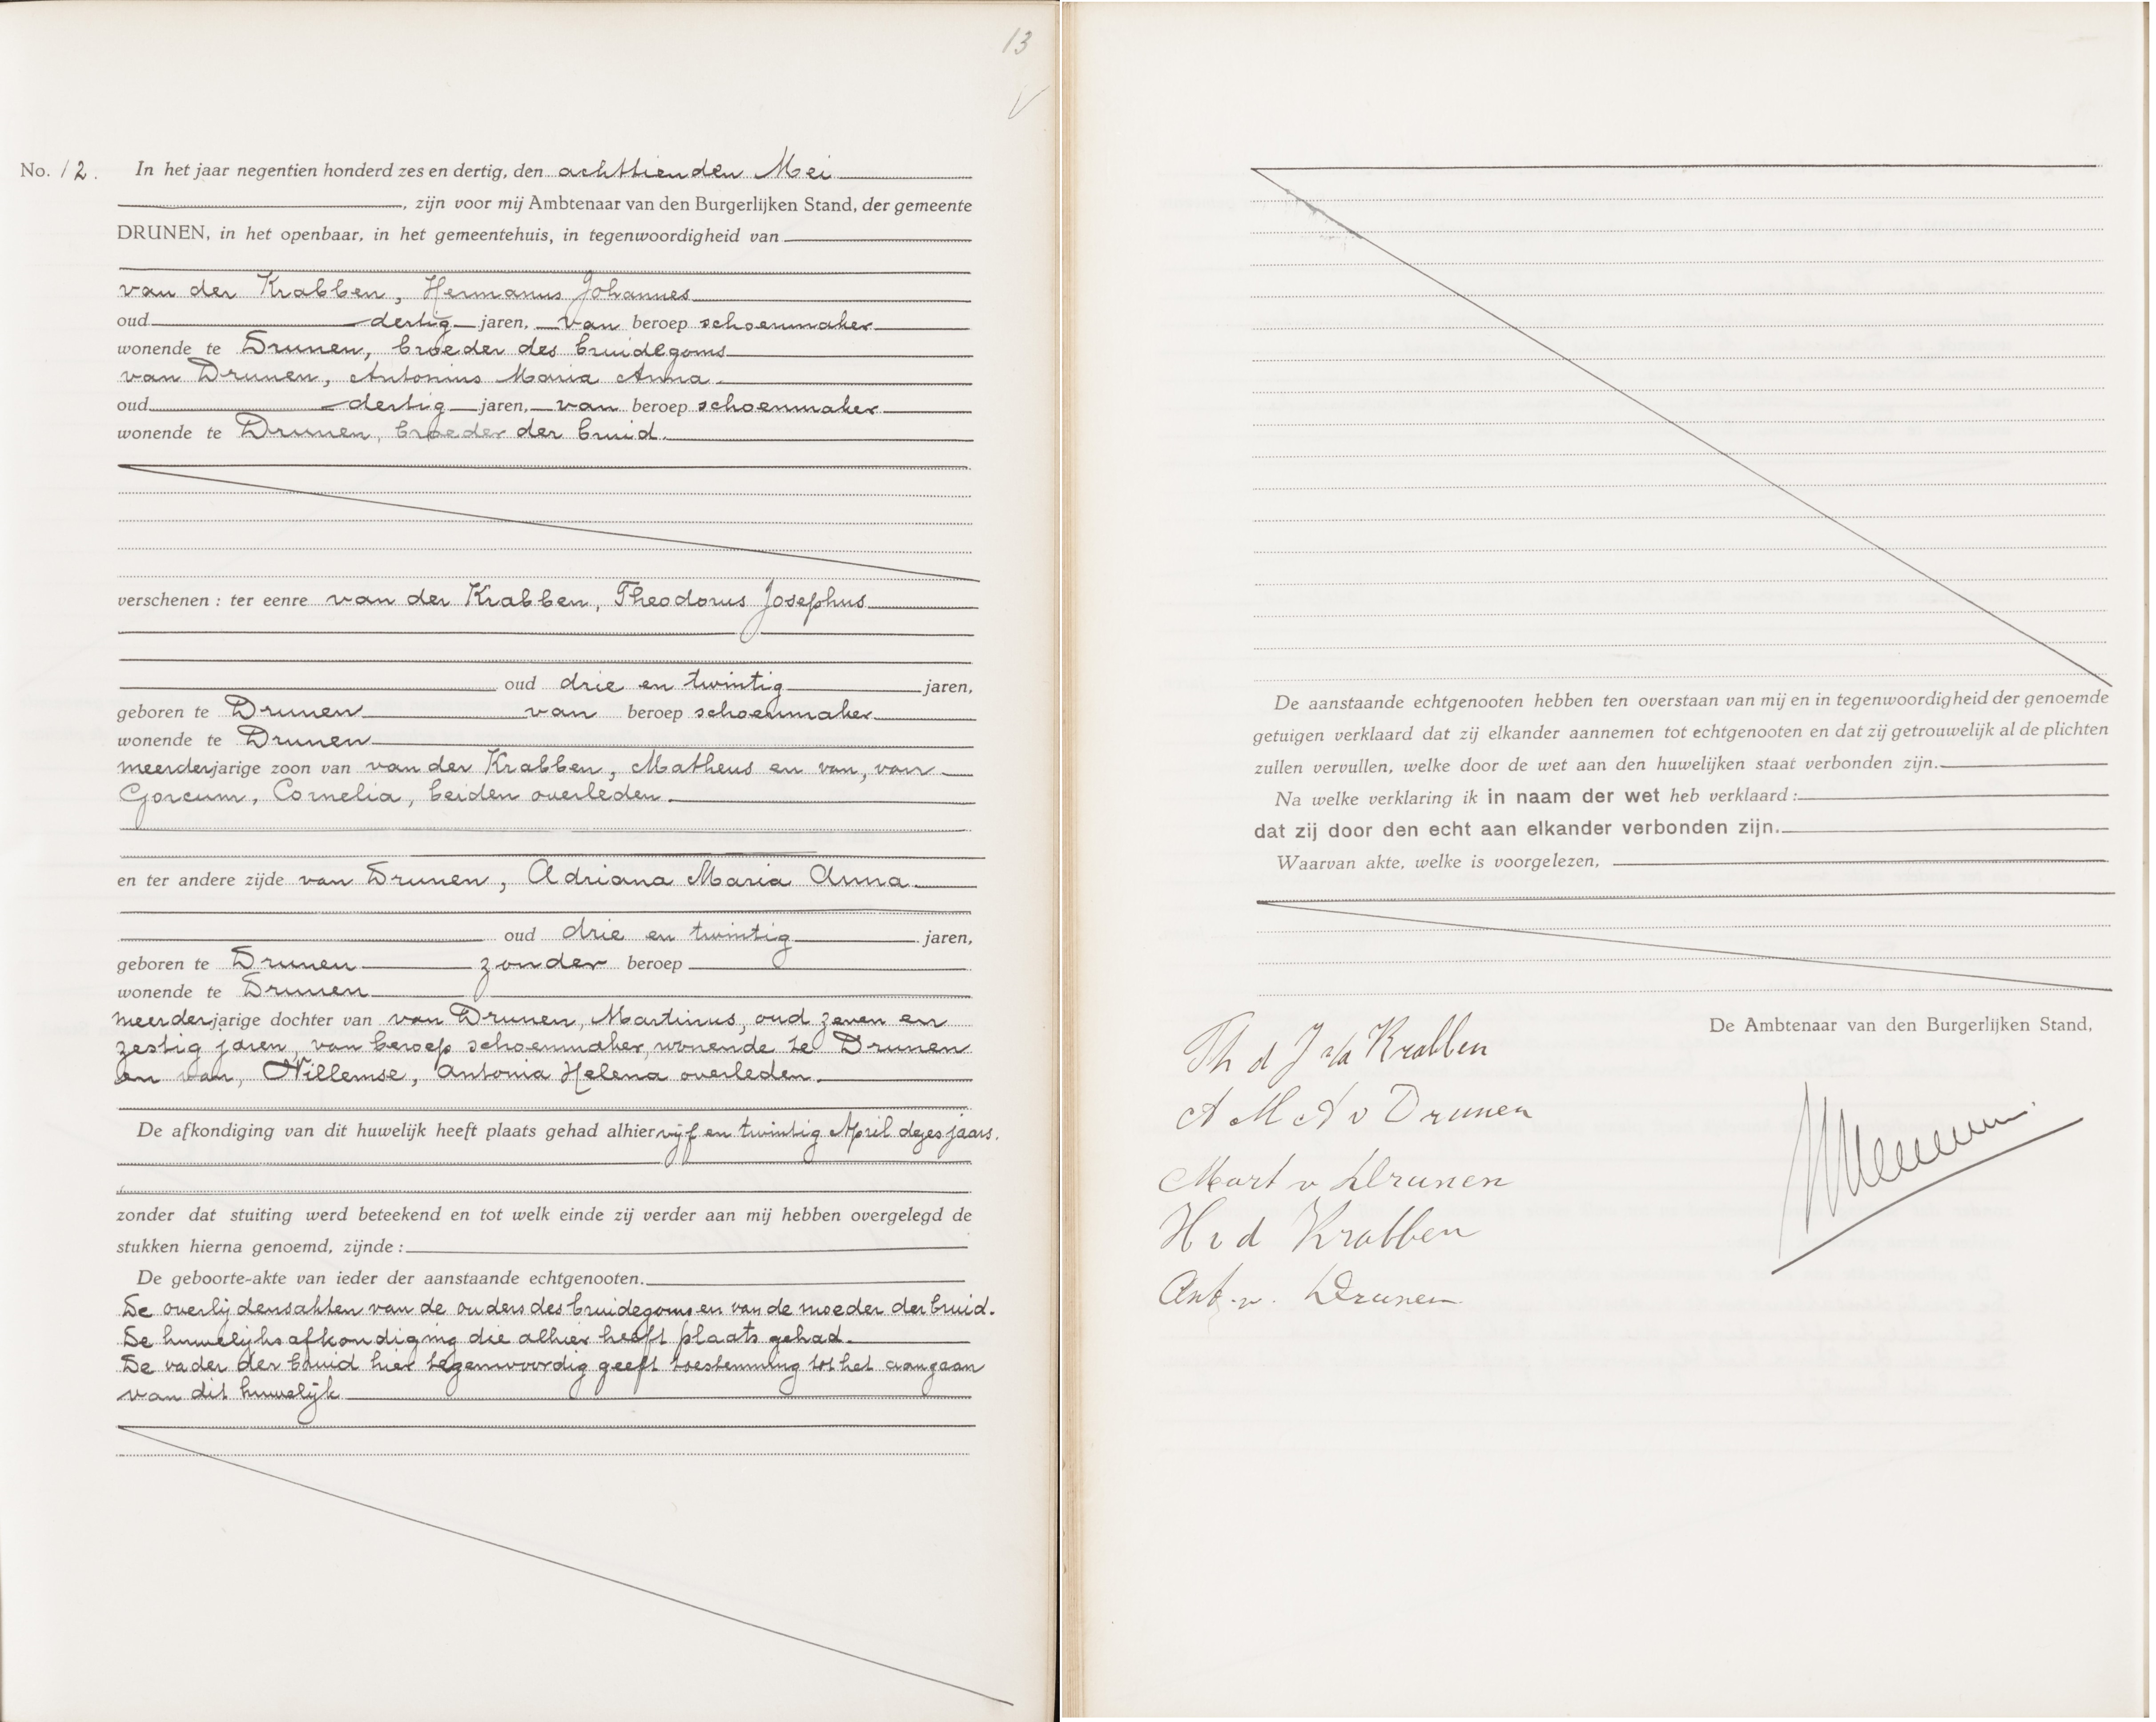 13
No. 12. In het jaar negentien honderd zes en dertig, den achttienden Mei
, zijn voor mij Ambtenaar van den Burgerlijken Stand, der gemeente
DRUNEN, in het openbaar, in het gemeentehuis, in tegenwoordigheid van
van der Krabben, Hermanus Johannes
oud dertig jaren, van beroep schoenmaker
wonende te Drunen, broeder des bruidegoms
van Drunen, Antonius Maria Anna
oud dertig jaren, van beroep schoenmaker
wonende te Drunen, broeder der bruid.
verschenen : ter eenre van der Krabben, Theodorus Josephus
oud drie en twintig jaren,
geboren te Drunen van beroep schoenmaker
wonende te Drunen
meerderjarige zoon van van der Krabben, Matheus en van, van
Gorcum, Cornelia, beiden overleden.
en ter andere zijde van Drunen, Adriana Maria Anna
oud drie en twintig jaren,
geboren te Drunen zonder beroep
wonende te Drunen
meerderjarige dochter van van Drunen, Martinus, oud zeven en
zestig jaren, van beroep schoenmaker, wonende te Drunen
en van, Willemse, Antonia Helena overleden.
De afkondiging van dit huwelijk heeft plaats gehad alhier vijf en twintig April dezes jaars.
zonder dat stuiting werd beteekend en tot welk einde zij verder aan mij hebben overgelegd de
stukken hierna genoemd, zijnde :
De geboorte-akte van ieder der aanstaande echtgenooten.
De overlijdensakten van de ouders des bruidegoms en van de moeder der bruid.
De huwelijksafkondiging die alhier heeft plaats gehad.
De vader der bruid hier tegenwoordig geeft toestemming tot het aangaan
van dit huwelijk
De aanstaande echtgenooten hebben ten overstaan van mij en in tegenwoordigheid der genoemde
getuigen verklaard dat zij elkander aannemen tot echtgenooten en dat zij getrouwelijk al de plichten
zullen vervullen, welke door de wet aan den huwelijken staat verbonden zijn.
Na welke verklaring ik in naam der wet heb verklaard :
dat zij door den echt aan elkander verbonden zijn.
Waarvan akte, welke is voorgelezen,
De Ambtenaar van den Burgerlijken Stand,
Th d J v/d Krabben
A M A v Drunen
Mart v Drunen
H v d Krabben
Ant. v. Drunen